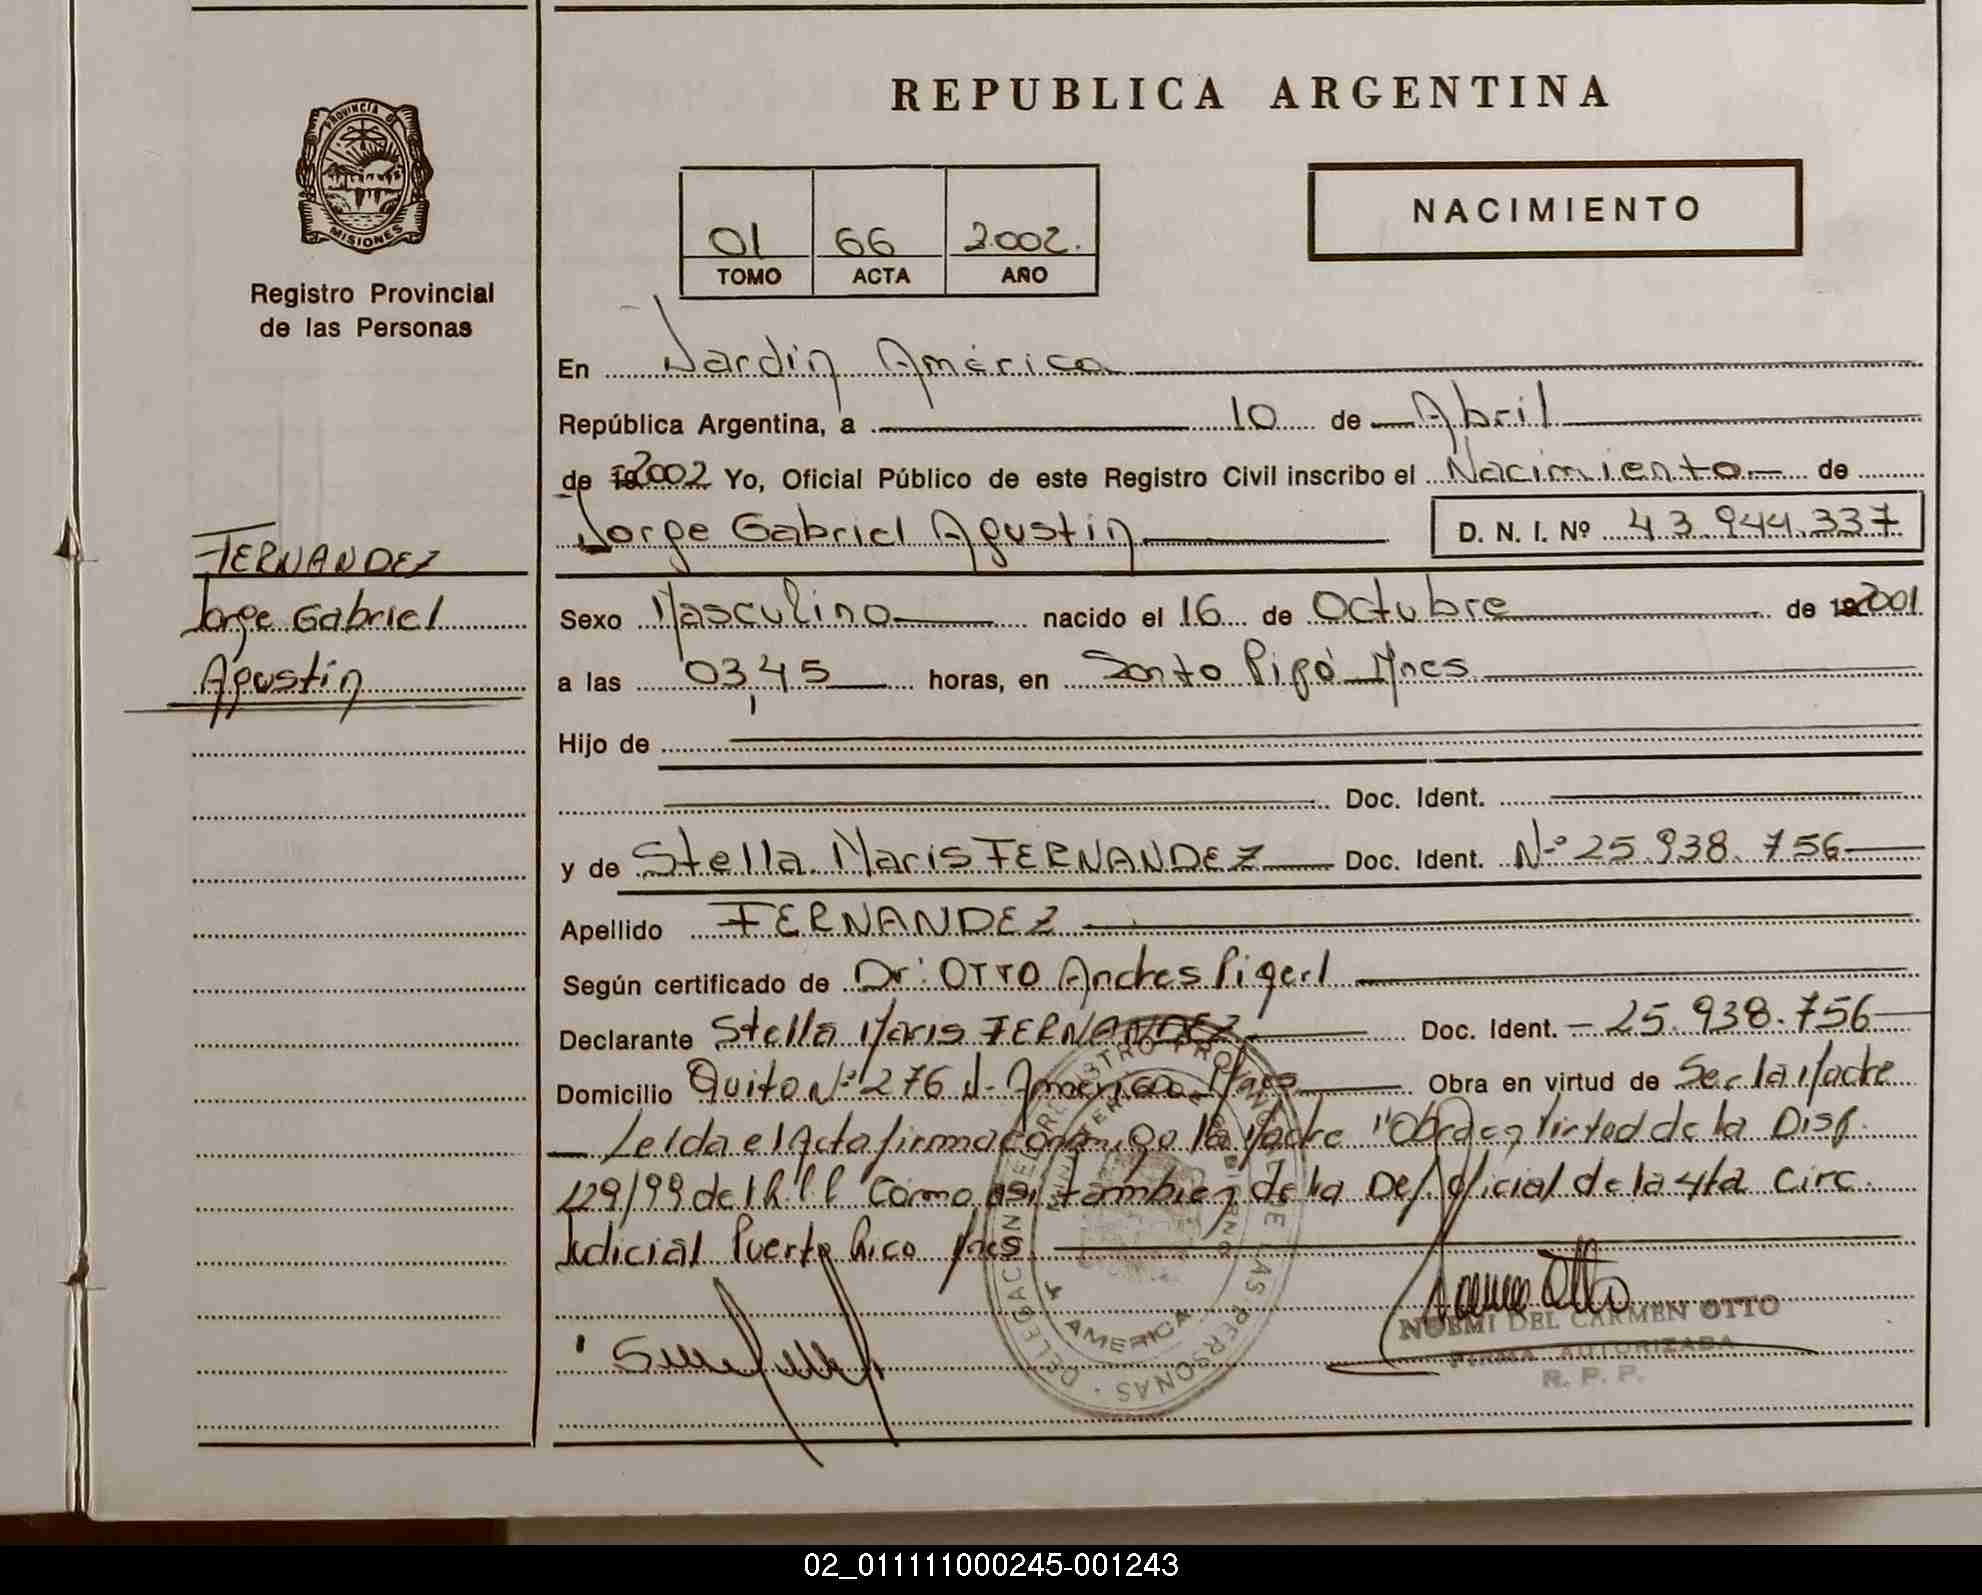 REPUBLICA ARGENTINA
PROVINCIA DE
MISIONES
Registro Provincial
de las Personas
01 66 2.002.
TOMO ACTA AÑO
NACIMIENTO
En Jardín América
República Argentina, a 10 de Abril
de 2002 Yo, Oficial Público de este Registro Civil inscribo el Nacimiento de
Jorge Gabriel Agustín D. N. I. Nº 43.944.337
FERNANDEZ
Jorge Gabriel
Agustín
Sexo Masculino nacido el 16 de Octubre de 2001
a las 03,45 horas, en Santo Pipó Mnes
Hijo de
Doc. Ident.
y de Stella Maris FERNANDEZ Doc. Ident. Nº 25.938.756
Apellido FERNANDEZ
Según certificado de Dr: OTTO Andres Pigerl
Declarante Stella Maris FERNANDEZ Doc. Ident. 25.938.756
Domicilio Quito Nº 276 J. América Mnes Obra en virtud de Ser la Madre
Leída el Acta firma conmigo la Madre "Obra en virtud de la Disp.
129/99 del R.P.P como así también de la Def. Oficial de la 4ta Circ.
Judicial Puerto Rico Mnes
NOEMI DEL CARMEN OTTO
FIRMA AUTORIZADA
R. P. P.
DELEGACION REGISTRO PROVINCIAL DE LAS PERSONAS
AMERICA
02_011111000245-001243